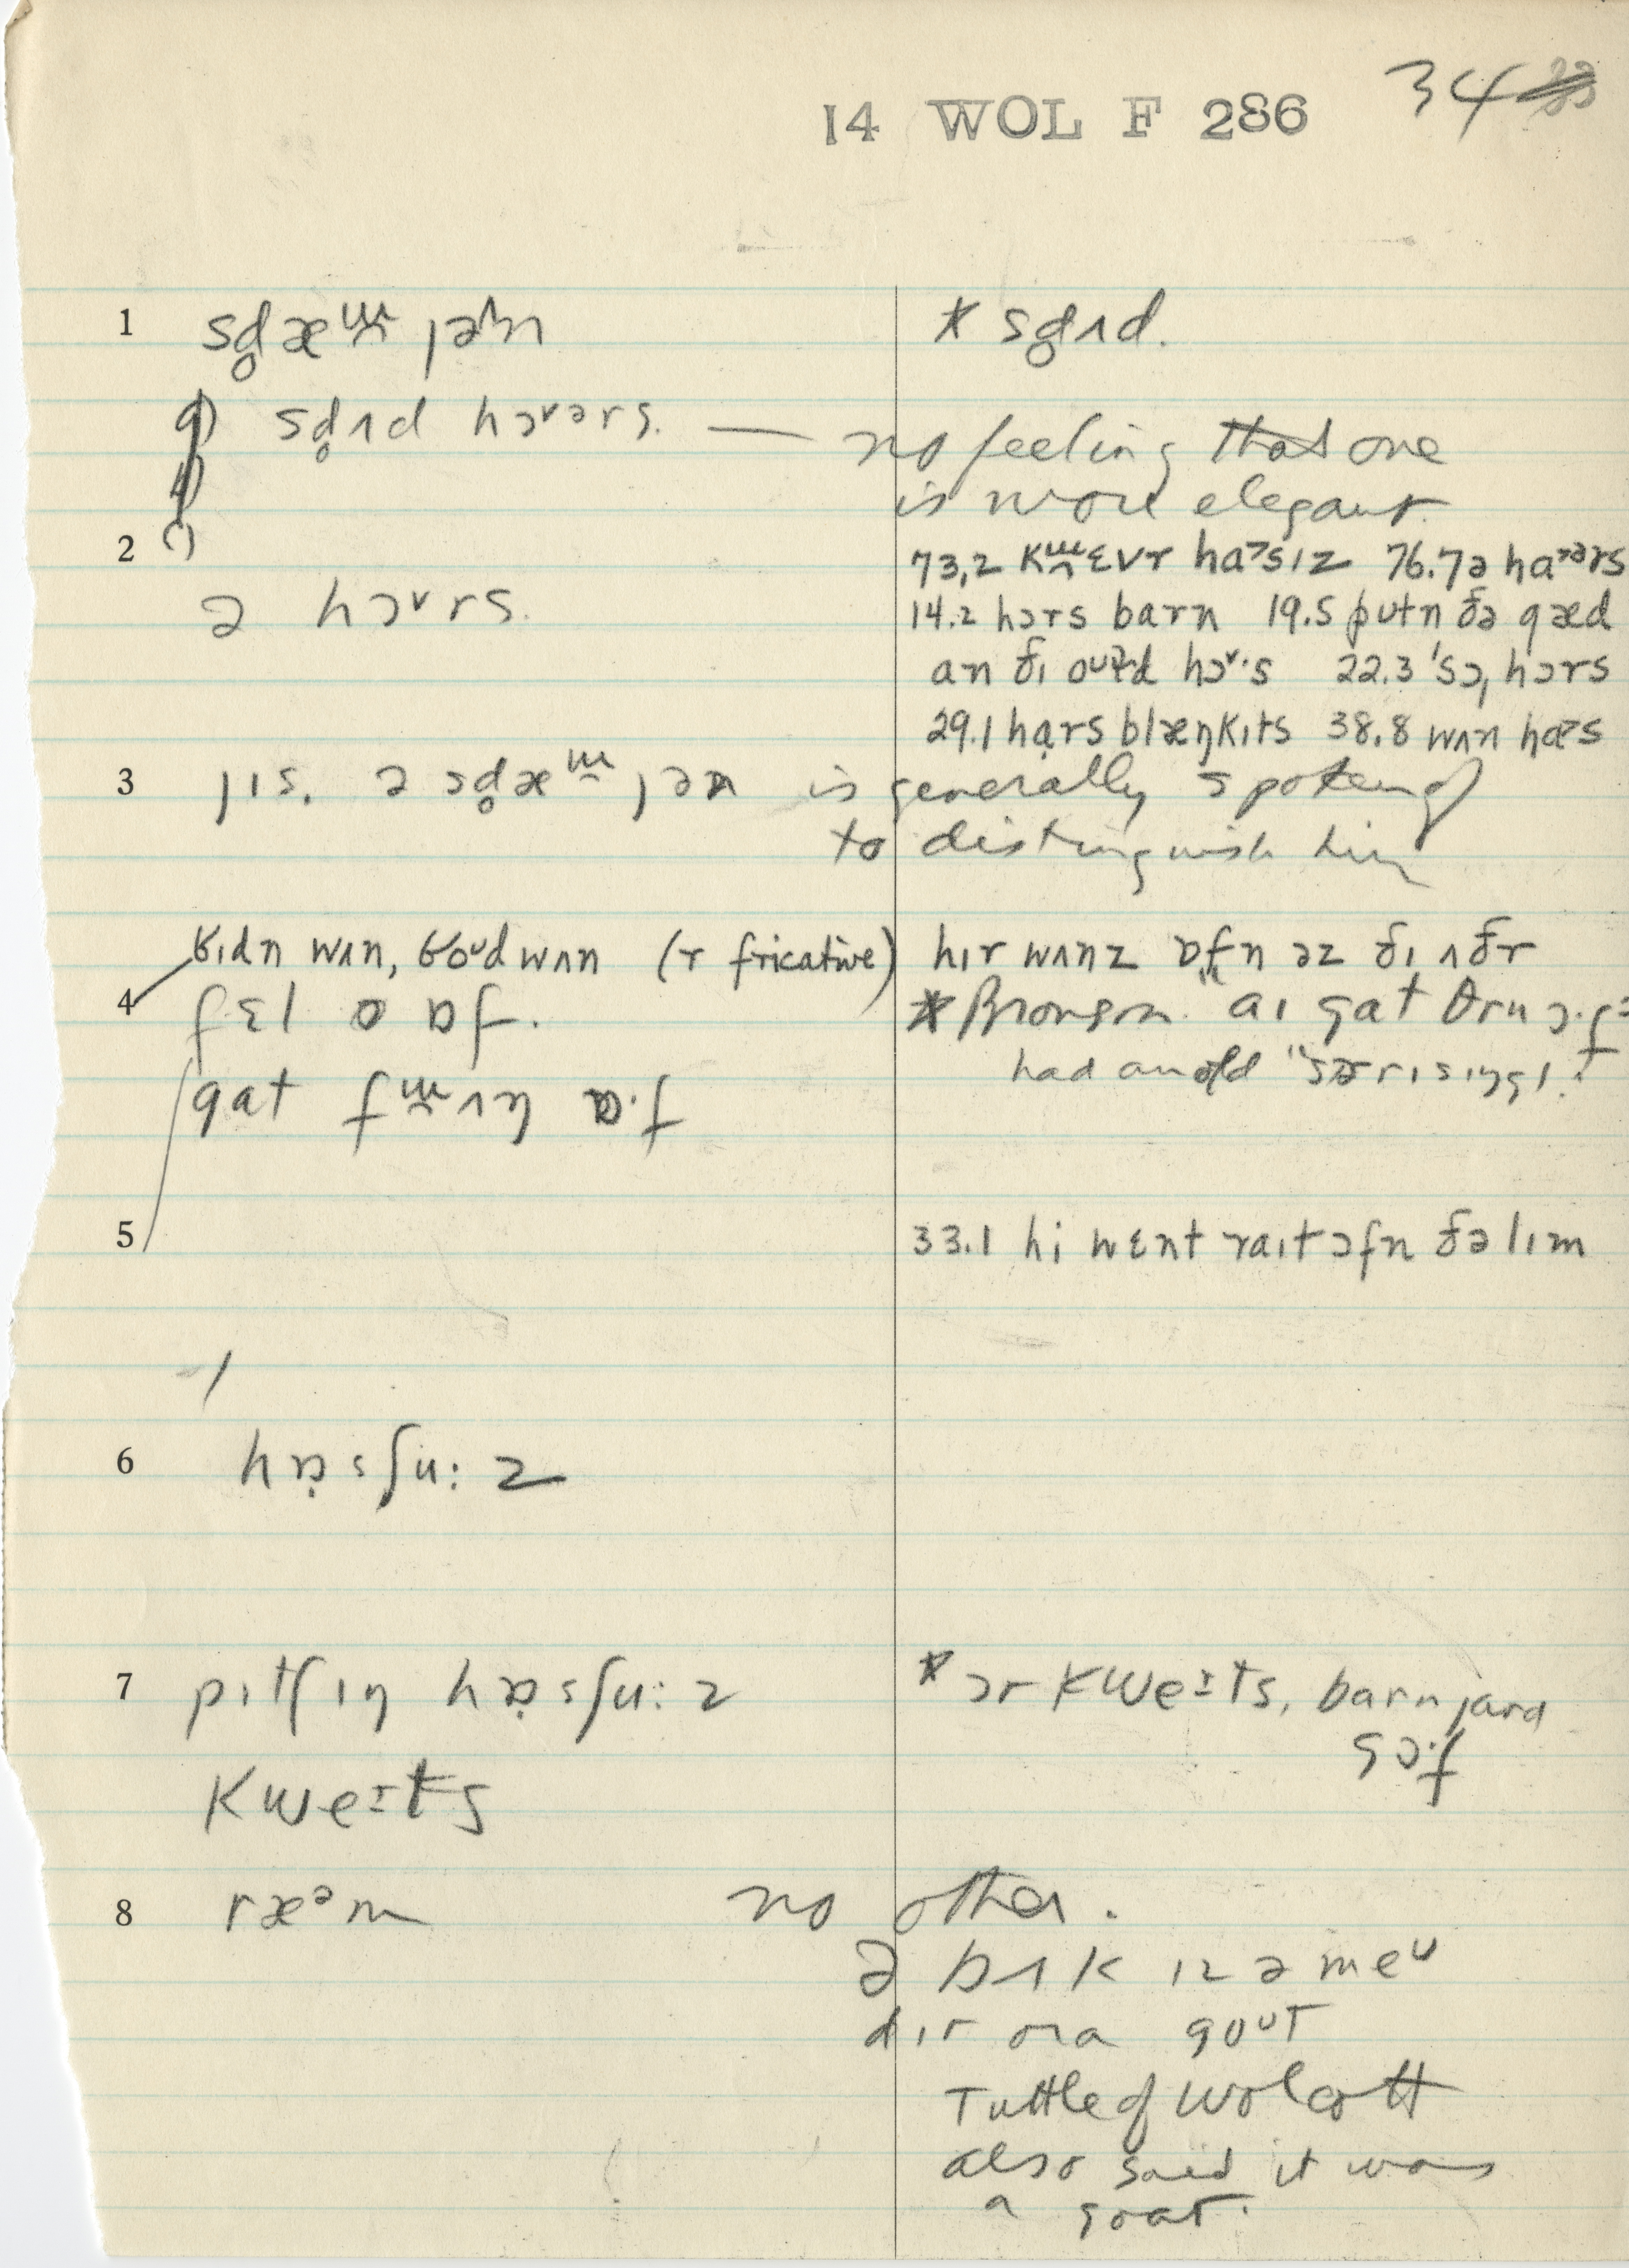 14 WOL F 286 34
1 sd̥æɯ̯ jəɫn * sd̥ʌd.
sd̥ʌd hɔ˅ərs. — no feeling that one
is more elegant.
2 73.2 kɯ̯ɛvr haˀsɪz 76.7 ə haˀərs
ə hɔ˅rs. 14.2 hɔrs barn 19.5 putn ðə gæd
an ðɪ hɔ˅·s 22.3 ˈsɔˌhɔrs
29.1 hạrs blæŋkɪts 38.8 wʌn
3 jɪs. ə sd̥æɯ̯ jən is generally spoken of
to distinguish him
wʌn, wʌn (r fricative) hɪr wʌnz ɒfn əz ðɪ ʌðr
4 fɛl ɒf. * Bronson "aɪ gat θru
had an old
gat ɒ·f
5 33.1 hi wɛnt raɪt ɔfn ðə lɪm
6 hɒ̣sʃu:z
7 pɪtʃɪŋ hɒ̣sʃu:z * ɔr kweɪts, barnjard
gɔ·f
kweɪts
8 ræᵊm no other.
ə bʌk ɪz ə meᵘ
dɪr ɔr a goᵘt
Tuttle of Wolcott
also said it was
a goat.